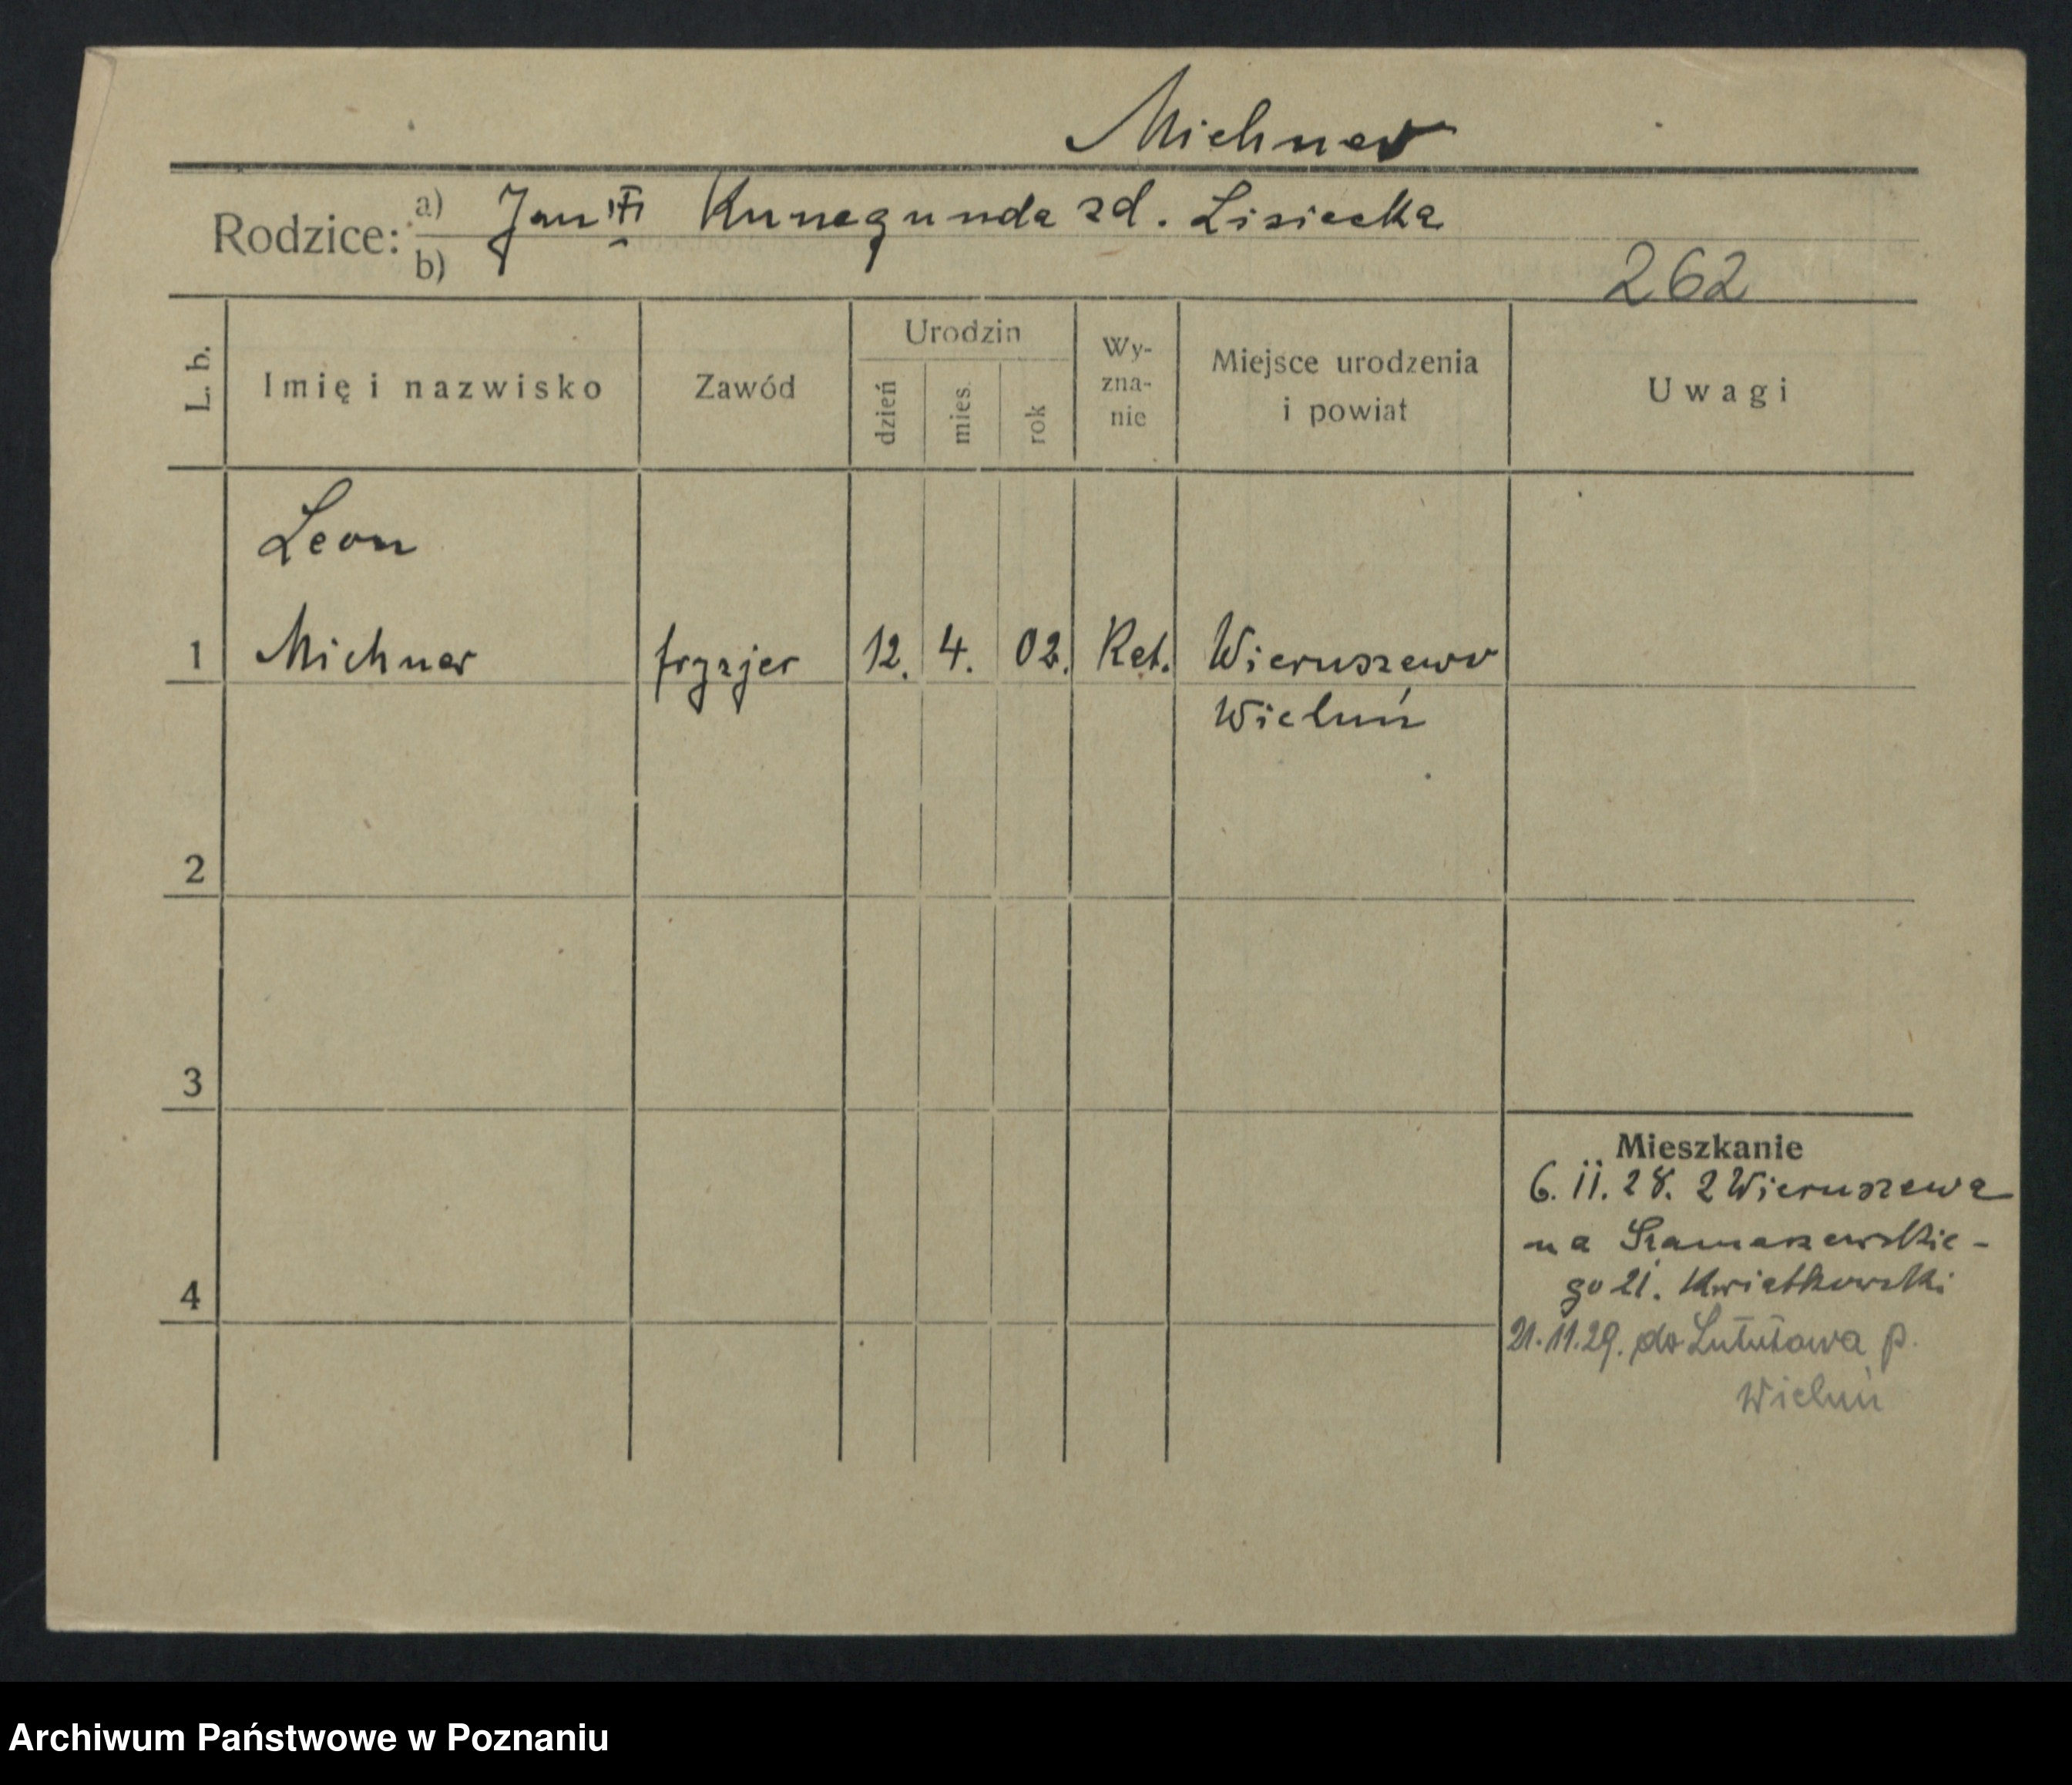 Michner
Rodzice: a) Jan III Kunegunda zd. Lisiecka
b)
262
L. b.
Imię i nazwisko
Zawód
Urodzin
dzień
mies.
rok
Wy-
zna-
nie
Miejsce urodzenia
i powiat
Uwagi
Leon
1 Michner fryzjer 12. 4. 02. Kat. Wieruszewo
Wieluń
2
3
4
Mieszkanie
6. II. 28. z Wieruszewa
na Szamarzewskie-
go 21. Kwiatkowski
21.11.29. do Lututowa p.
Wieluń
Archiwum Państwowe w Poznaniu